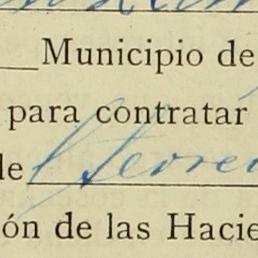 Municipio de
para contratar
de
ón de las Hacie